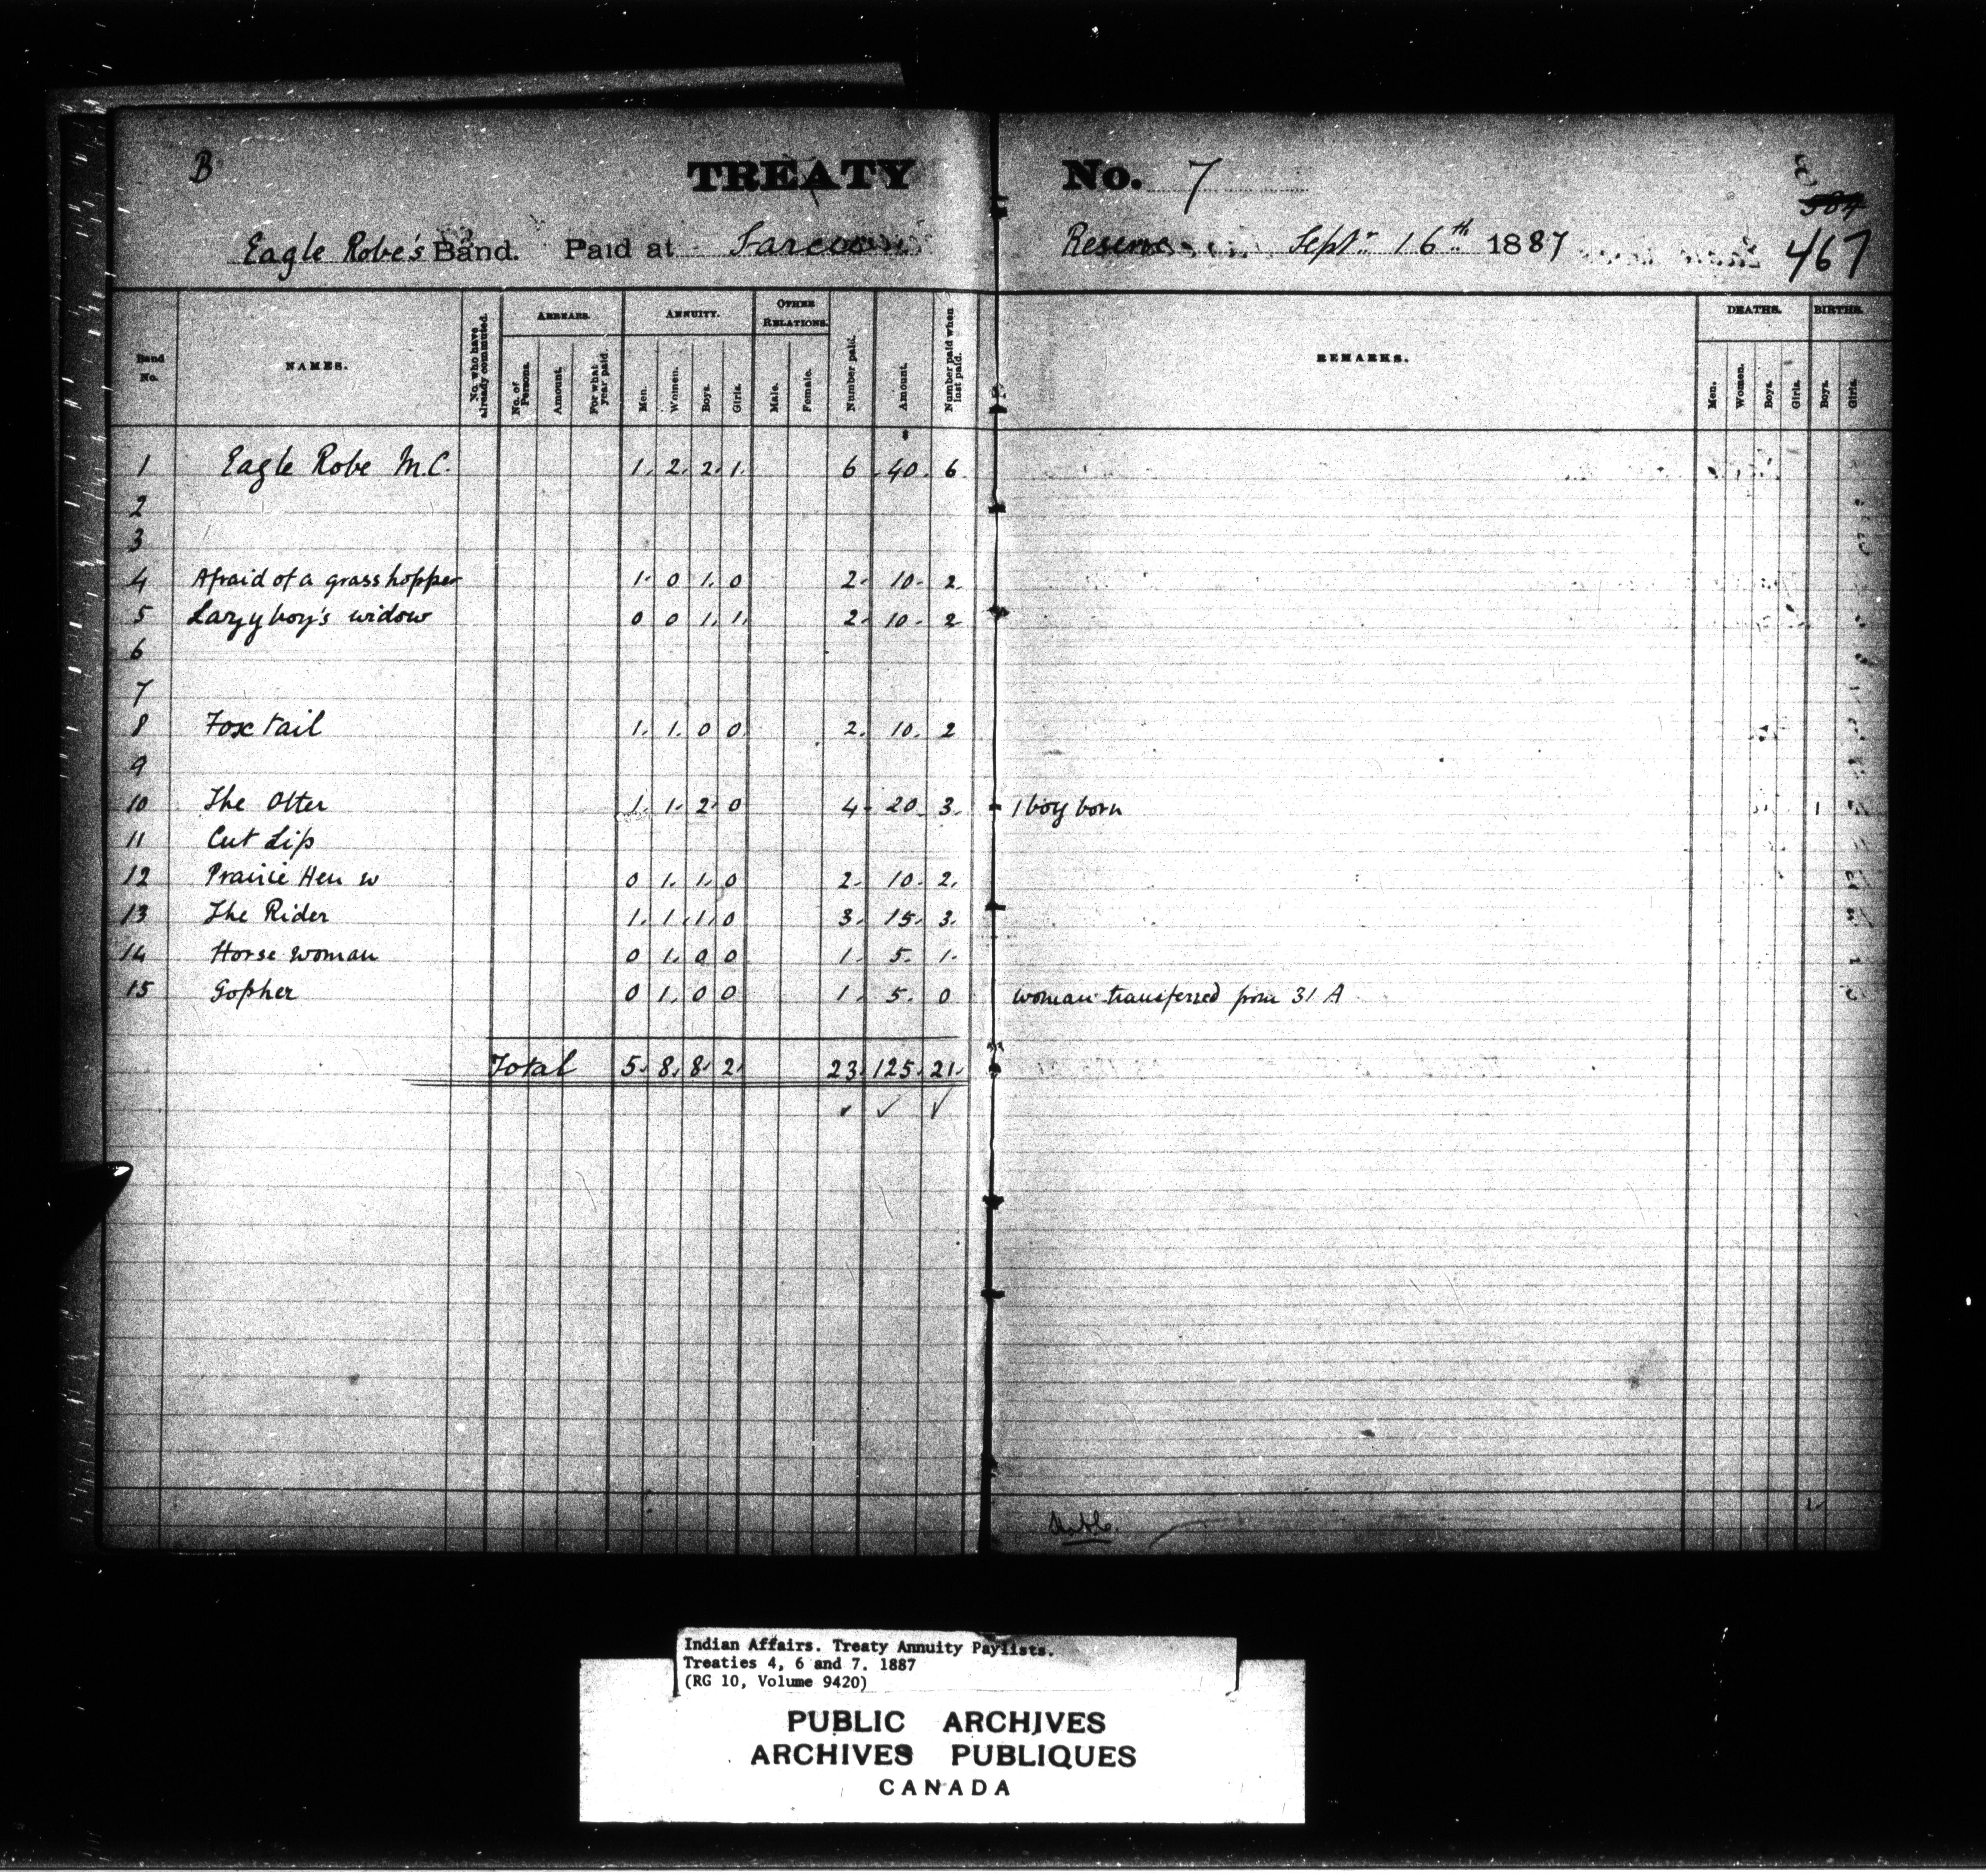 B TREATY No. 7
Eagle Robe's Band. Paid at Sarcee Reserve Septr 16th 1887 467
Band No. NAMES. No. who have already commuted. ARREARS. No. of Persons. Amount. For what year paid. ANNUITY. Men. Women. Boys. Girls. OTHER RELATIONS. Male. Female. Number paid. Amount. Number paid when last paid. REMARKS. DEATHS. Men. Women. Boys. Girls. BIRTHS. Boys. Girls.
$
1 Eagle Robe M.C. 1. 2. 2. 1. 6 40. 6
2
3
4 Afraid of a grasshopper 1. 0 1. 0 2. 10. 2
5 Lazy boy's widow 0 0 1. 1. 2. 10. 2
6
7
8 Fox tail 1. 1. 0 0 2. 10. 2
9
10 The Otter 1. 1. 2. 0 4. 20. 3. 1 boy born 1
11 Cut Lip
12 Prairie Hen w 0 1. 1. 0 2. 10. 2.
13 The Rider 1. 1. 1. 0 3. 15. 3.
14 Horse woman 0 1. 0 0 1. 5. 1.
15 Gopher 0 1. 0 0 1. 5. 0 woman transferred from 31 A
Total 5. 8. 8. 2. 23. 125. 21.
Indian Affairs. Treaty Annuity Paylists.
Treaties 4, 6 and 7. 1887
(RG 10, Volume 9420)
PUBLIC ARCHIVES
ARCHIVES PUBLIQUES
CANADA